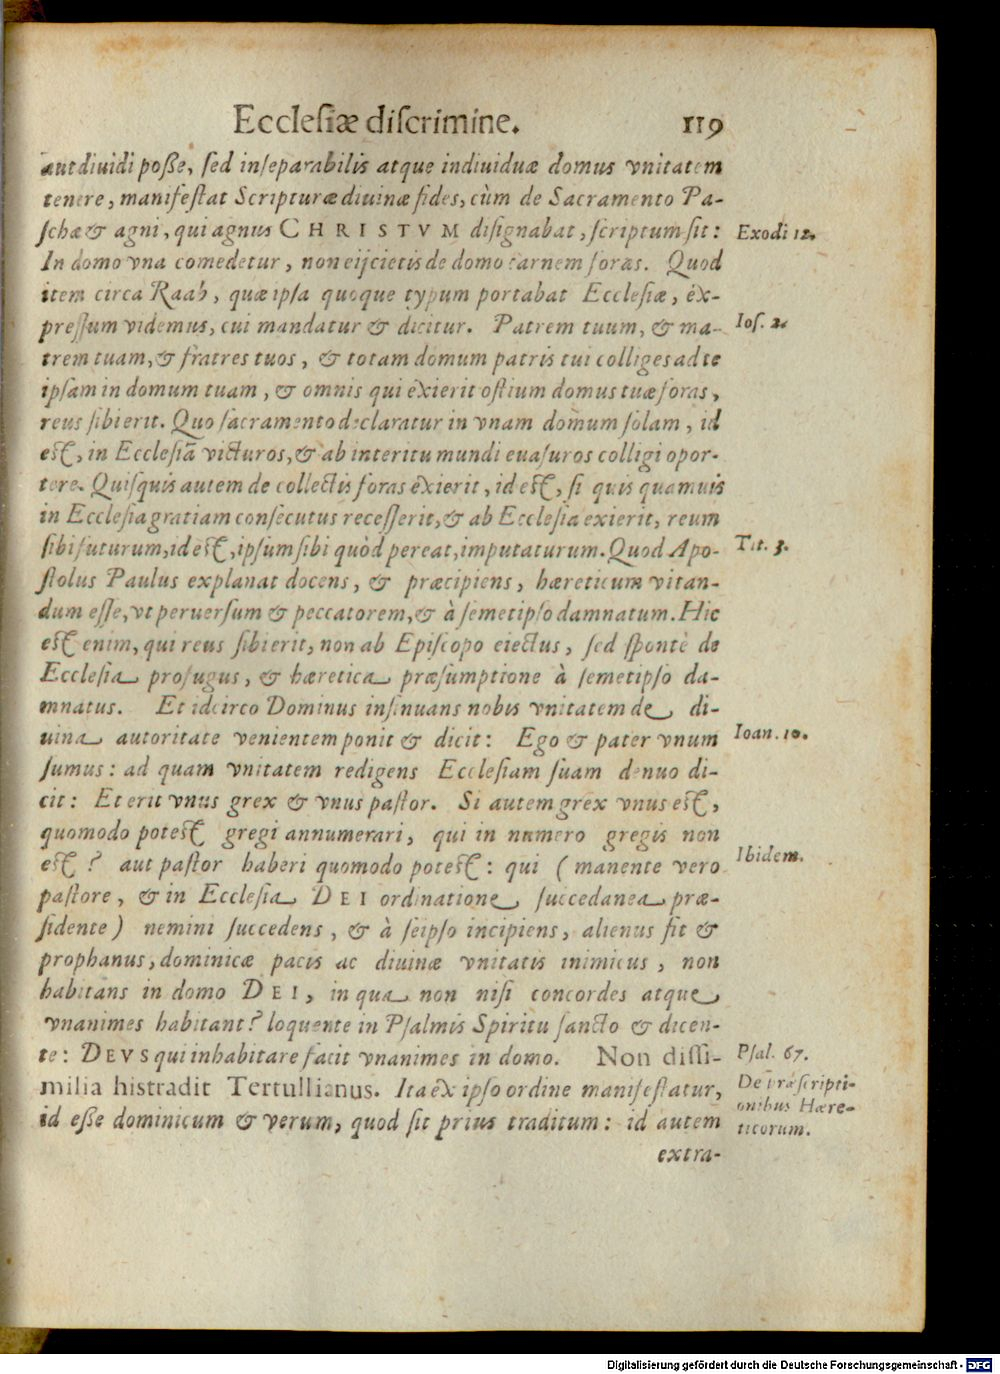 Ecclesiæ discrimine. 119
aut diuidi poſſe, ſed inſeparabilis atque indiuiduæ domus vnitatem
tenere, manifeſtat Scripturæ diuinæ fides, cùm de Sacramento Pa-
ſchæ & agni, qui agnus CHRISTVM diſignabat, ſcriptum ſit: Exodi 12.
In domo vna comedetur, non eijcietis de domo carnem foras. Quod
item circa Raab, quæ ipſa quoque typum portabat Eccleſiæ, éx-
preſſum videmus, cui mandatur & dicitur. Patrem tuum, & ma- Ioſ. 2.
trem tuam, & fratres tuos, & totam domum patris tui colliges ad te
ipſam in domum tuam, & omnis qui éxierit oſtium domus tuæ foras,
reus ſibi erit. Quo ſacramento declaratur in vnam domum ſolam, id
eſt, in Eccleſiã victuros, & ab interitu mundi euaſuros colligi opor-
tere. Quiſquis autem de collectis foras éxierit, id eſt, ſi quis quamuis
in Eccleſia gratiam conſecutus receſſerit, & ab Eccleſia exierit, reum
ſibi futurum, id eſt, ipſum ſibi quòd pereat, imputaturum. Quod Apo- Tit. 3.
ſtolus Paulus explanat docens, & præcipiens, hæreticum vitan-
dum eſſe, vt peruerſum & peccatorem, & à ſemetipſo damnatum. Hic
eſt enim, qui reus ſibi erit, non ab Epiſcopo eiectus, ſed ſponte de
Eccleſia profugus, & hæretica præſumptione à ſemetipſo da-
mnatus. Et idcirco Dominus inſinuans nobis vnitatem de di-
uina autoritate venientem ponit & dicit: Ego & pater vnum Ioan. 10.
ſumus: ad quam vnitatem redigens Eccleſiam ſuam denuo di-
cit: Et erit vnus grex & vnus paſtor. Si autem grex vnus eſt,
quomodo poteſt gregi annumerari, qui in numero gregis non
eſt? aut paſtor haberi quomodo poteſt: qui (manente vero Ibidem.
paſtore, & in Eccleſia DEI ordinatione ſuccedanea præ-
ſidente) nemini ſuccedens, & à ſeipſo incipiens, alienus ſit &
prophanus, dominicæ pacis ac diuinæ vnitatis inimicus, non
habitans in domo DEI, in qua non niſi concordes atque
vnanimes habitant? loquente in Pſalmis Spiritu ſancto & dicen-
te: DEVS qui inhabitare facit vnanimes in domo. Non diſſi- Pſal. 67.
milia his tradit Tertullianus. Ita éx ipſo ordine manifeſtatur, De præſcripti-
onibus Hære-
id eſſe dominicum & verum, quod ſit prius traditum: id autem ticorum.
extra-
Digitalisierung gefördert durch die Deutsche Forschungsgemeinschaft - DFG